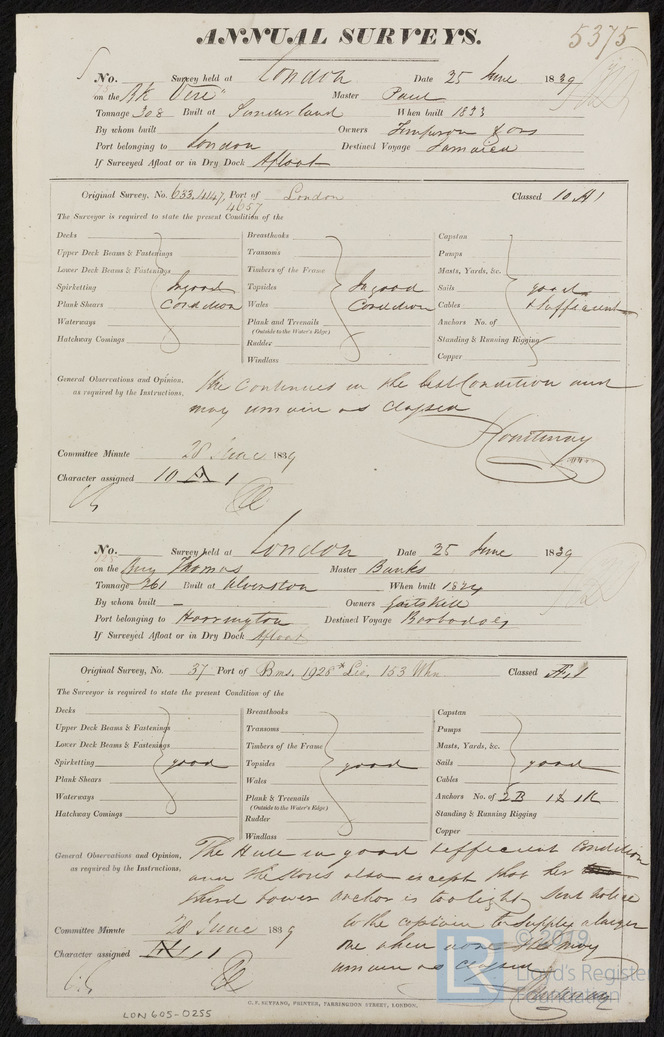 ANNUAL SURVEYS.
5375
No. Survey held at London Date 25 June 1839
on the Bk Vere Master Paul
Tonnage 308 Built at Sunderland When built 1833
By whom built Owners Timperon & Sons
Port belonging to London Destined Voyage Jamaica
If Surveyed Afloat or in Dry Dock Afloat
Original Survey, No. 633.4147, Port of London Classed 10 A 1
4657
The Surveyor is required to state the present Condition of the
Decks Breasthooks Capstan
Upper Deck Beams & Fastenings Transoms Pumps
Lower Deck Beams & Fastenings Timbers of the Frame Masts, Yards, &c.
Spirketting In good Topsides In good Sails good
Plank Shears Condition Wales Condition Cables & sufficient
Waterways Plank and Treenails Anchors No. of
(Outside to the Water's Edge)
Hatchway Comings Rudder Standing & Running Rigging
Windlass Copper
General Observations and Opinion, She Continues in the best Condition and
as required by the Instructions, may remain as classed
Courtenay
Committee Minute 28 June 1839
Character assigned 10 A 1
No. Survey held at London Date 25 June 1839
on the Brig Thomas Master Banks
Tonnage 261 Built at Ulverston When built 1824
By whom built – Owners Gaitskill
Port belonging to Harrington Destined Voyage Barbadoes
If Surveyed Afloat or in Dry Dock Afloat
Original Survey, No. 37 Port of Bms. 1928 * Liv. 153 Whn Classed Æ 1
The Surveyor is required to state the present Condition of the
Decks Breasthooks Capstan
Upper Deck Beams & Fastenings Transoms Pumps
Lower Deck Beams & Fastenings Timbers of the Frame Masts, Yards, &c.
Spirketting good Topsides good Sails good
Plank Shears Wales Cables
Waterways Plank & Treenails Anchors No. of 2B 1S 1K
(Outside to the Water's Edge)
Hatchway Comings Rudder Standing & Running Rigging
Windlass Copper
General Observations and Opinion, The Hull in good & efficient Condition
as required by the Instructions, and the stores also except that her
third bower anchor is too light, sent notice
Committee Minute 28 June 1839 to the captain to supply a larger
one when done she may
Character assigned Æ 1 remain as classed
Courtenay
© 2019
LR Lloyd's Register
Foundation
C. F. SEYFANG, PRINTER, FARRINGDON STREET, LONDON.
LON605-0255